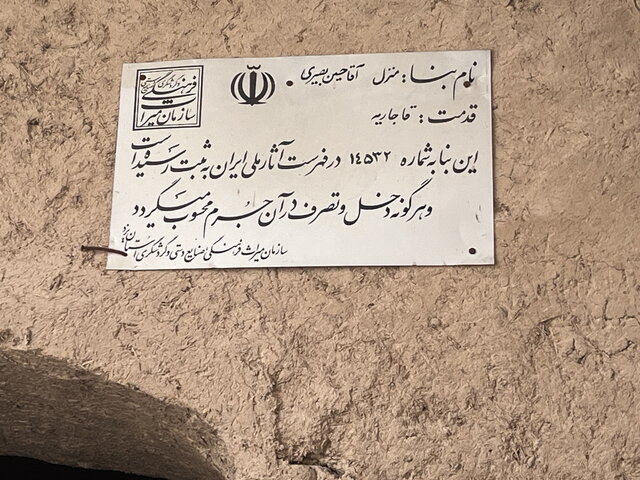 نام بنا: منزل آقا حسین بصیری
قدمت: قاجاریه
این بنا به شماره ۱۴۵۳۲ در فهرست آثار ملی ایران به ثبت رسیده است
و هرگونه دخل و تصرف در آن جرم محسوب میگردد
سازمان میراث فرهنگی صنایع دستی و گردشگری استان یزد
سازمان میراث فرهنگی